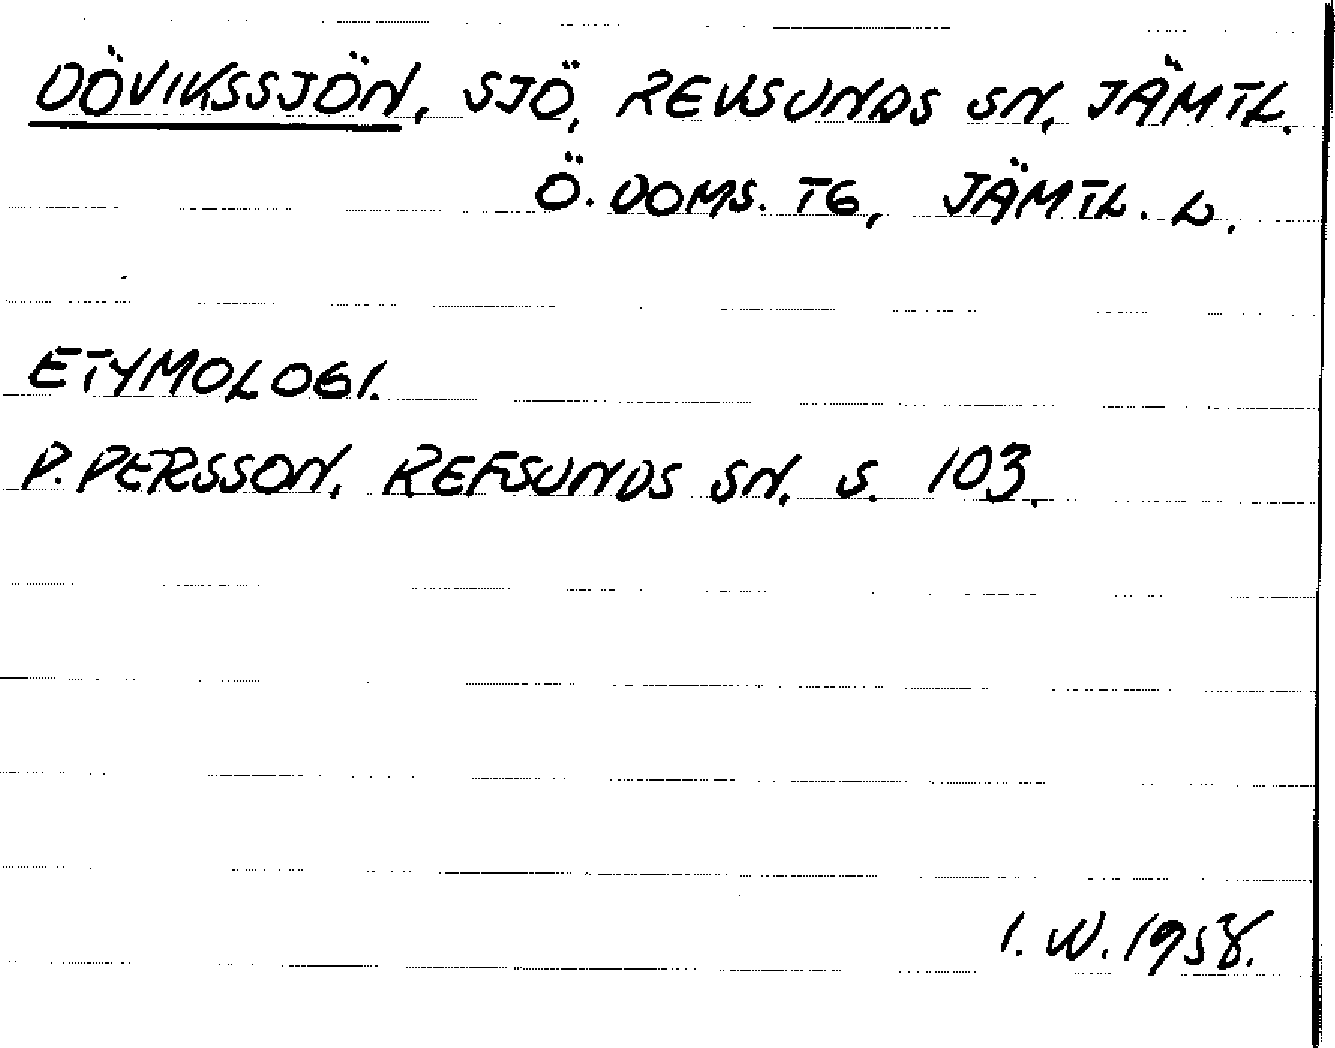 DÖVIKSSJÖN, SJÖ, REVSUNDS SN, JÄMTL.
Ö. DOMS. TG, JÄMTL. L.
ETYMOLOGI.
P. PERSSON, REFSUNDS SN, S. 103.
I. W. 1958.